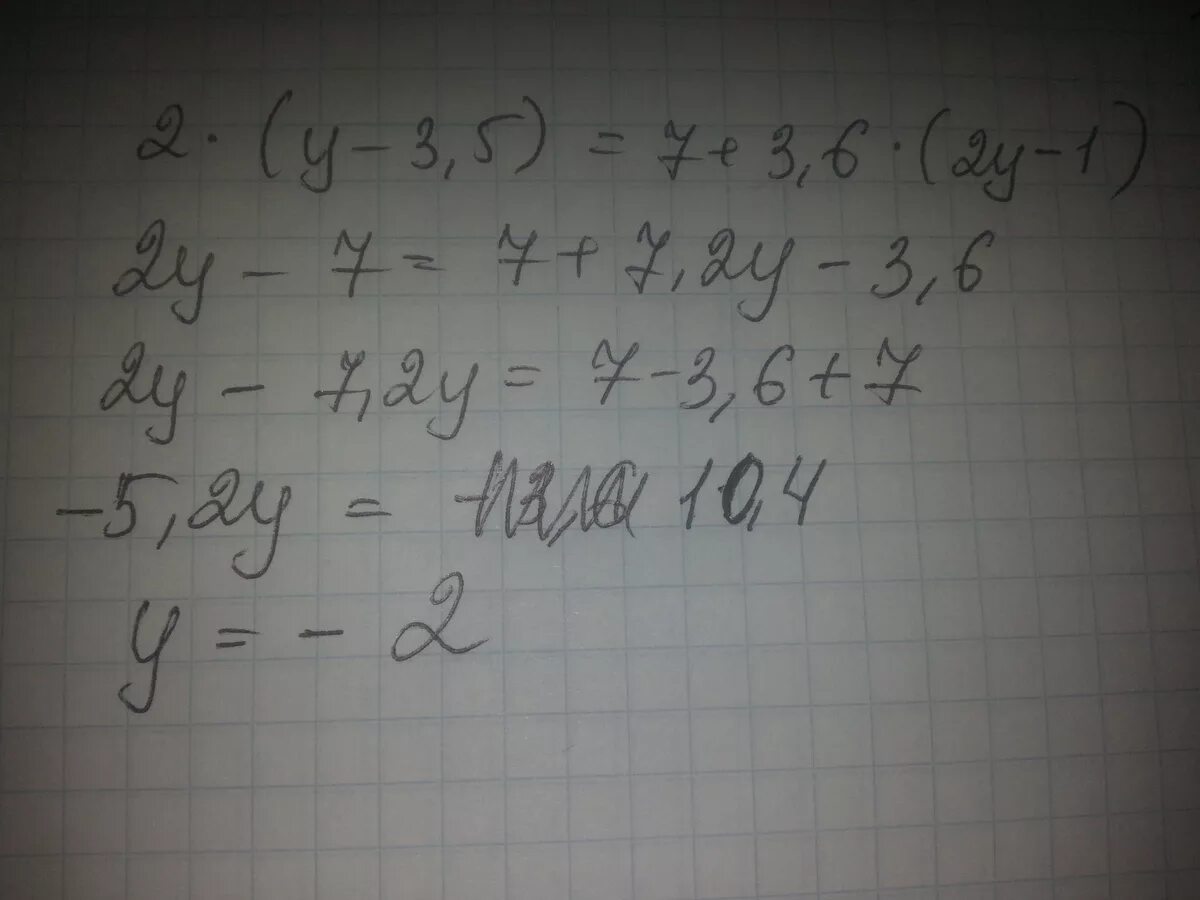 2·(y-3,5)=7+3,6·(2y-1)
2y-7=7+7,2y-3,6
2y-7,2y=7-3,6+7
-5,2y= 10,4
y=-2